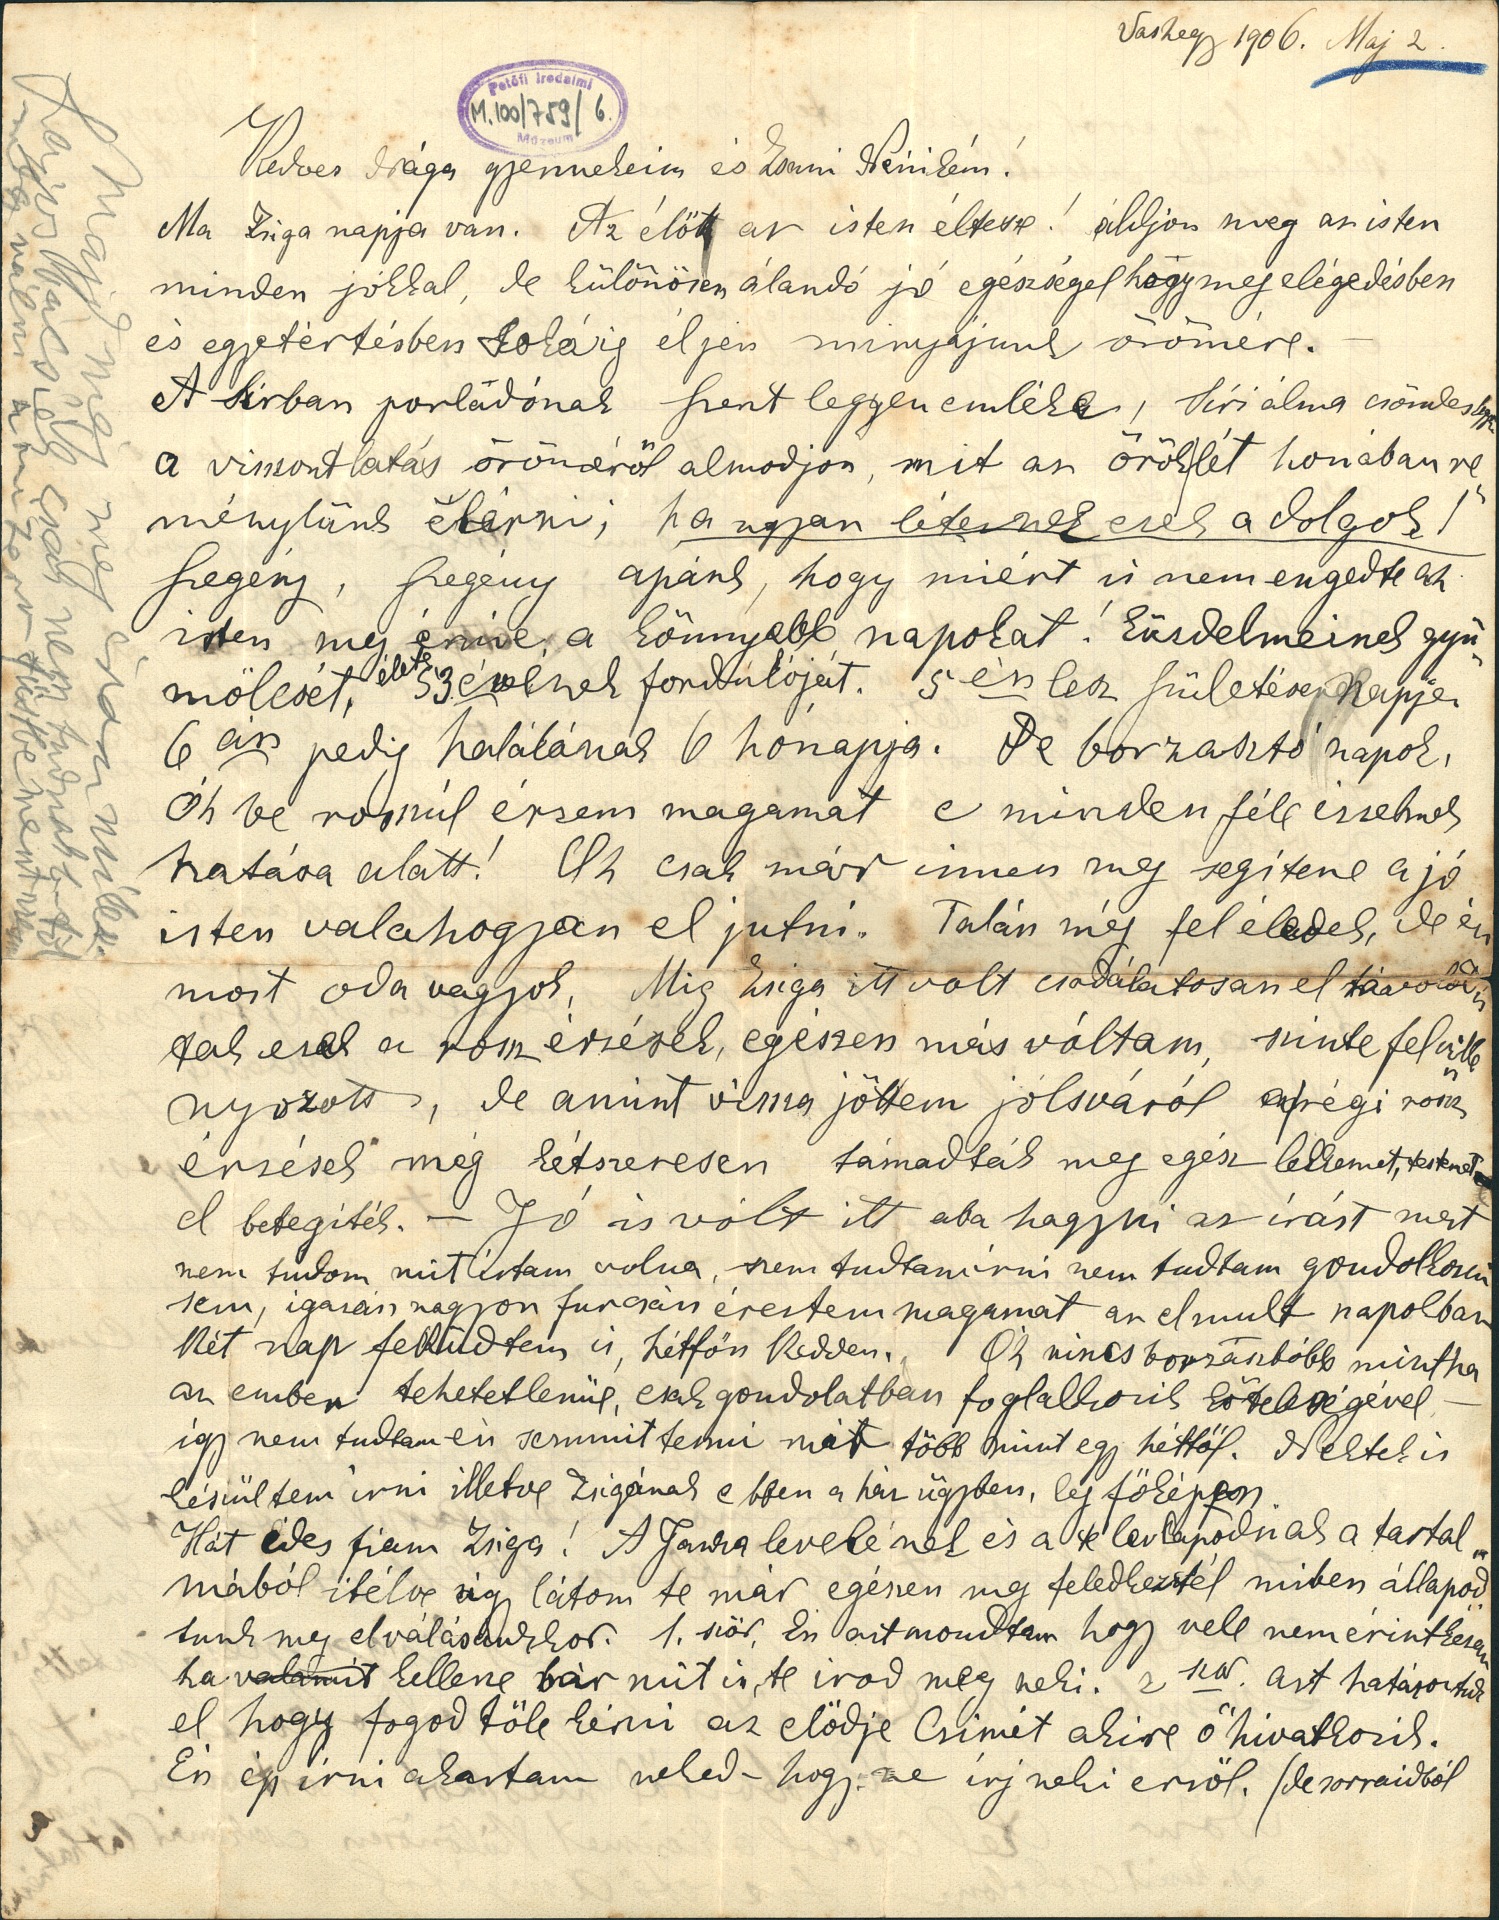 Vashegy 1906. Maj 2.
Petőfi Irodalmi
M.100/759/6.
Múzeum
Kedves drága gyermekeim és Zsuzsi Nénikém!
Ma Zsiga napja van. Az élőt az isten éltesse! áldjon meg az isten
minden jókkal, de különösen álandó jó egészségel hogy meg elégedésben
és egyetértésben sokáig éljen minyájunk örömére. —
A sírban porladónak szent legyen emléke, Síri álma csöndes legye
a viszontlatás öröméről almodjon, mit az öröklét honában re
ménylünk elérni; ha ugyan léteznek ezek a dolgok!
Szegény, szegény apánk, hogy miért is nem engedte az
isten meg érnie, a könnyebb napokat! küzdelmeinek gyü„
mölcsét, élete 53 évének fordulóját. 5 én lesz születése napja
6 án pedig halálának 6 hónapja. De borzasztó napok,
Óh be rosszúl érzem magamat e minden féle érzelmek
hatása alatt! Oh csak már innen meg segítene a jó
isten valahogyan el jutni. Talán még fel éledek, de én
most oda vagyok, Mig Zsiga itt volt csodálatosan el távozó
tak ezek a rosz érzések, egészen más vóltam, szinte fel vill
nyozott, de amint vissza jöttem jólsváról a régi rossz
érzések még kétszeresen támadták meg egész lelkemet, testemet
el betegíték. — Jó is vólt itt aba hagyni az írást mert
nem tudom mit irtam volna, nem tudtam irni nem tudtam gondolkozni
sem, igazán nagyon furcsán éreztem magamat az elmult napokban
Két nap feküdtem is, hétfőn kedden. Oh nincs borzasztóbb mintha
az ember tehetetlenül, csak gondolatban foglalkozik kötelességével —
így nem tudtam én semmit tenni már több mint egy héttől. Nektek is
készültem irni illetve Zsigának ebben a ház ügyben, leg főképpen
Hát édes fiam Zsiga! A Janka levelének és a te levlapodnak a tartal„
mából itélve úgy látom te már egészen meg feledkeztél miben állapod„
tunk meg elválásunkkor. 1. ször, Én azt mondtam hogy vele nem érintkezem
ha valamit kellene bár mit is, te irod meg neki. 2 szor. azt határoztuk
el hogy fogod tőle kérni az elődje Czimét akire ő hivatkozik.
Én ép irni akartam neked – hogy ne irj neki erről. (de sorraidból
Majd még meg irom miles.
Karivs Kacsiék csak nem tudnak g től
meg válni amíterv füstbe ment